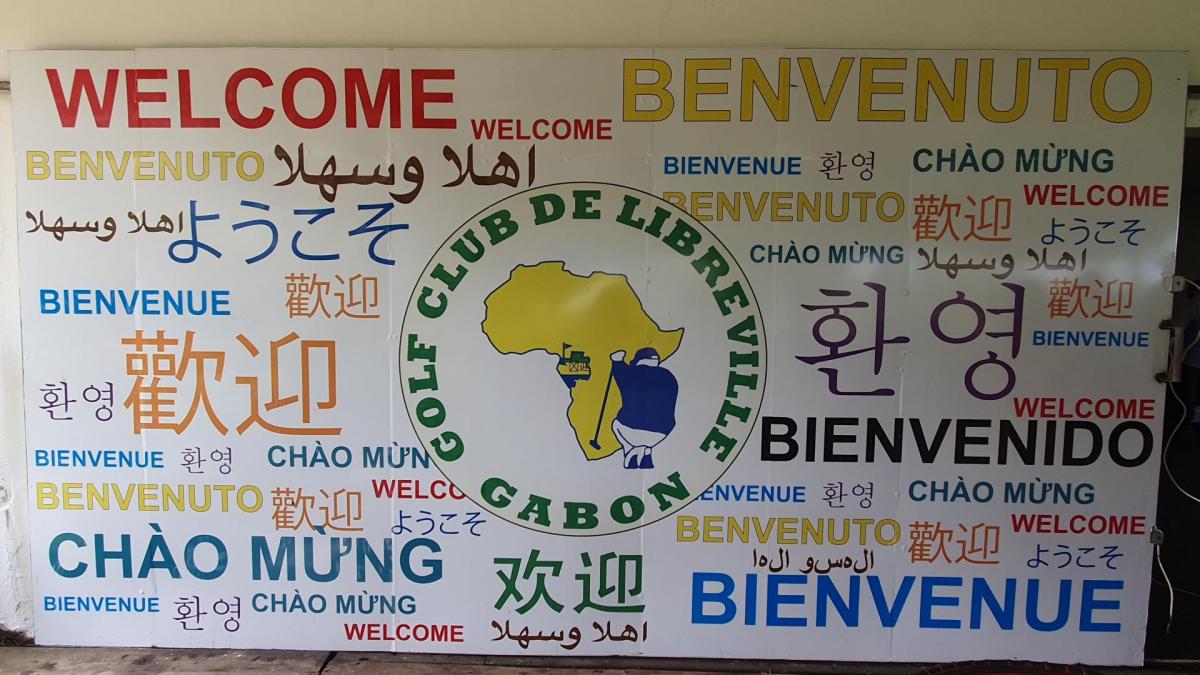 WELCOME
WELCOME
BENVENUTO
BENVENUTO
اهلا وسهلا
BIENVENUE
환영
CHÀO MỪNG
اهلا وسهلا
ようこそ
BENVENUTO
歡迎
WELCOME
ようこそ
CHÀO MỪNG
اهلا وسهلا
BIENVENUE
歡迎
GOLF CLUB DE LIBREVILLE
GABON
환영
歡迎
BIENVENUE
환영
歡迎
WELCOME
BIENVENIDO
BIENVENUE
환영
CHÀO MỪN
BENVENUTO
歡迎
WELCO
ようこそ
ENVENUE
환영
CHÀO MỪNG
BENVENUTO
歡迎
WELCOME
ようこそ
CHÀO MỪNG
欢迎
BIENVENUE
BIENVENUE
환영
CHÀO MỪNG
WELCOME
اهلا وسهلا